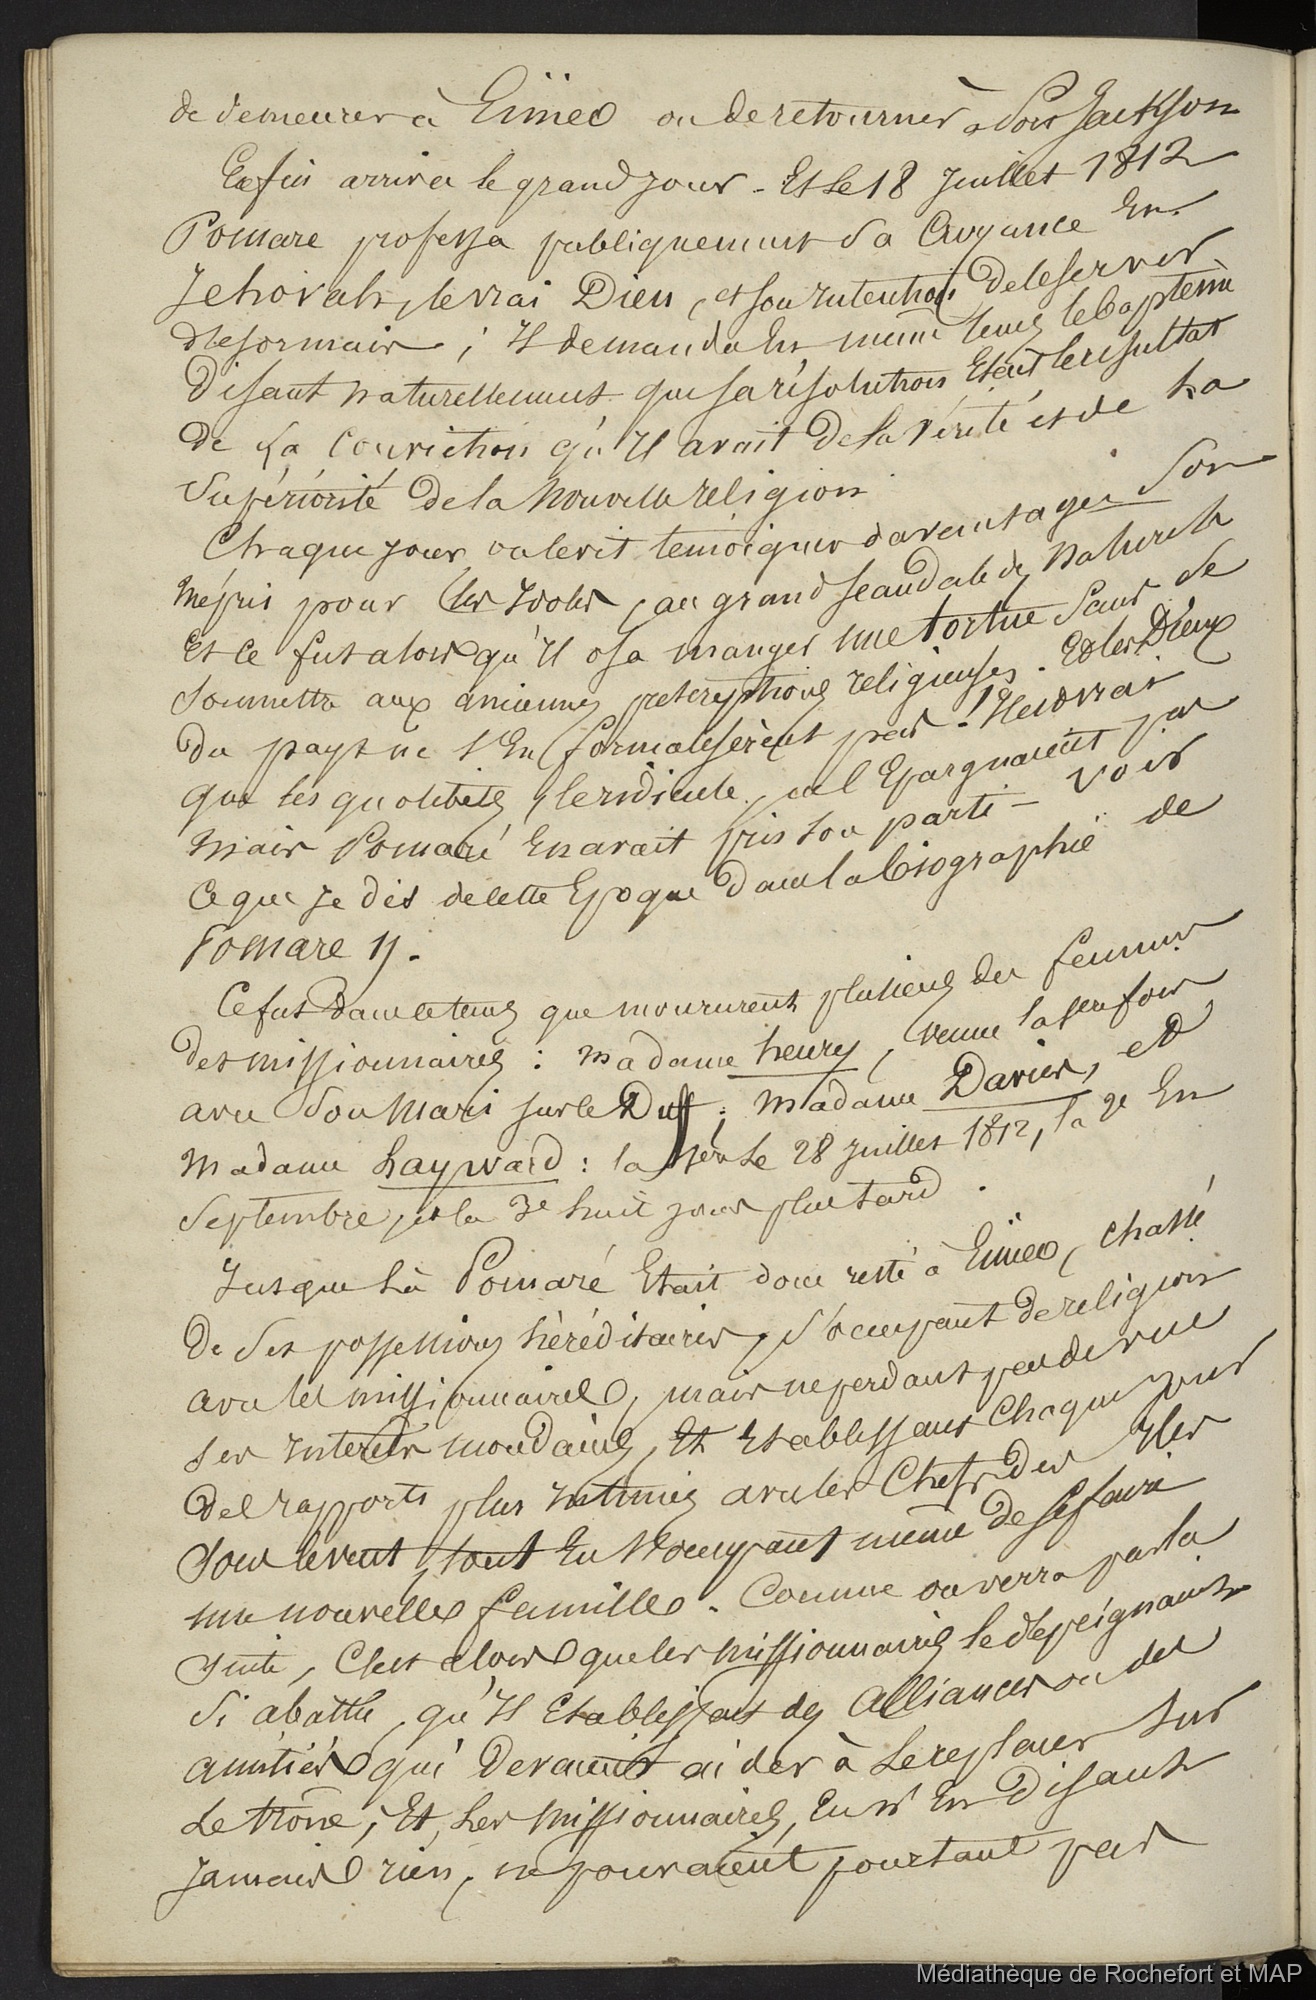 de demeurer à Eïmeo ou de retourner à Port Jackson
Enfin arriva le grand jour - Et le 18 Juillet 1812
Pomare professa publiquement sa Croyance En
Jehovah, le vrai Dieu, et son intention de le servir
désormais ; Il demanda En même tems le baptême
disant naturellement que sa résolution Etait le résultat
de La Conviction qu'Il avait de la Vérité et de La
Supériorité de la Nouvelle religion
Chaque jour valerit témoigner davantager son
Mépris pour les Idoles, au grand scandale des Naturels
Et ce fut alors qu'Il osa manger une tortue Sans se
Soumettre aux anciennes prescriptions religieuses. Et les Dieux
du pays ne s'En formalisèrent pas - Il est vrai
que les quolibets, le ridicule, ne l'Epargnaient pas
Mais Pomaré En avait pris son parti - Voir
Ce que je dis de cette Epoque dans la biographie de
Pomare II.
Ce fut dans ce tems que moururent plusieurs des femmes
des missionnaires : Madame henry, venue la 1ere fois
avec Son Mari sur le Duff ; Madame Davies, et
Madame hayward : la 1ere le 28 Juillet 1812, la 2e En
Septembre, et la 3e huit jours plus tard .
Jusque là Pomaré Etait donc resté à Eïmeo, chassé
de Ses possessions héréditaires, s'occupant de religion
avec les missionnaires, mais ne perdant pas de vue
ses Interêts mondains, Et Etablissant Chaque jour
des rapports plus Intimes avec les Chefs des Iles
Sous le vent, tout En s'occupant même de se faire
une nouvelle famille. Comme on verra par la
Suite, C'est alors que les missionnaires le dépeignaient
Si abattu, qu'Il Etablissait des Alliances ou des
amitiés qui devaient aider à Le replacer Sur
Le trône ; Et Les Missionnaires, Eux En Disant
Jamais rien, ne pouvaient pourtant pas
Médiathèque de Rochefort et MAP